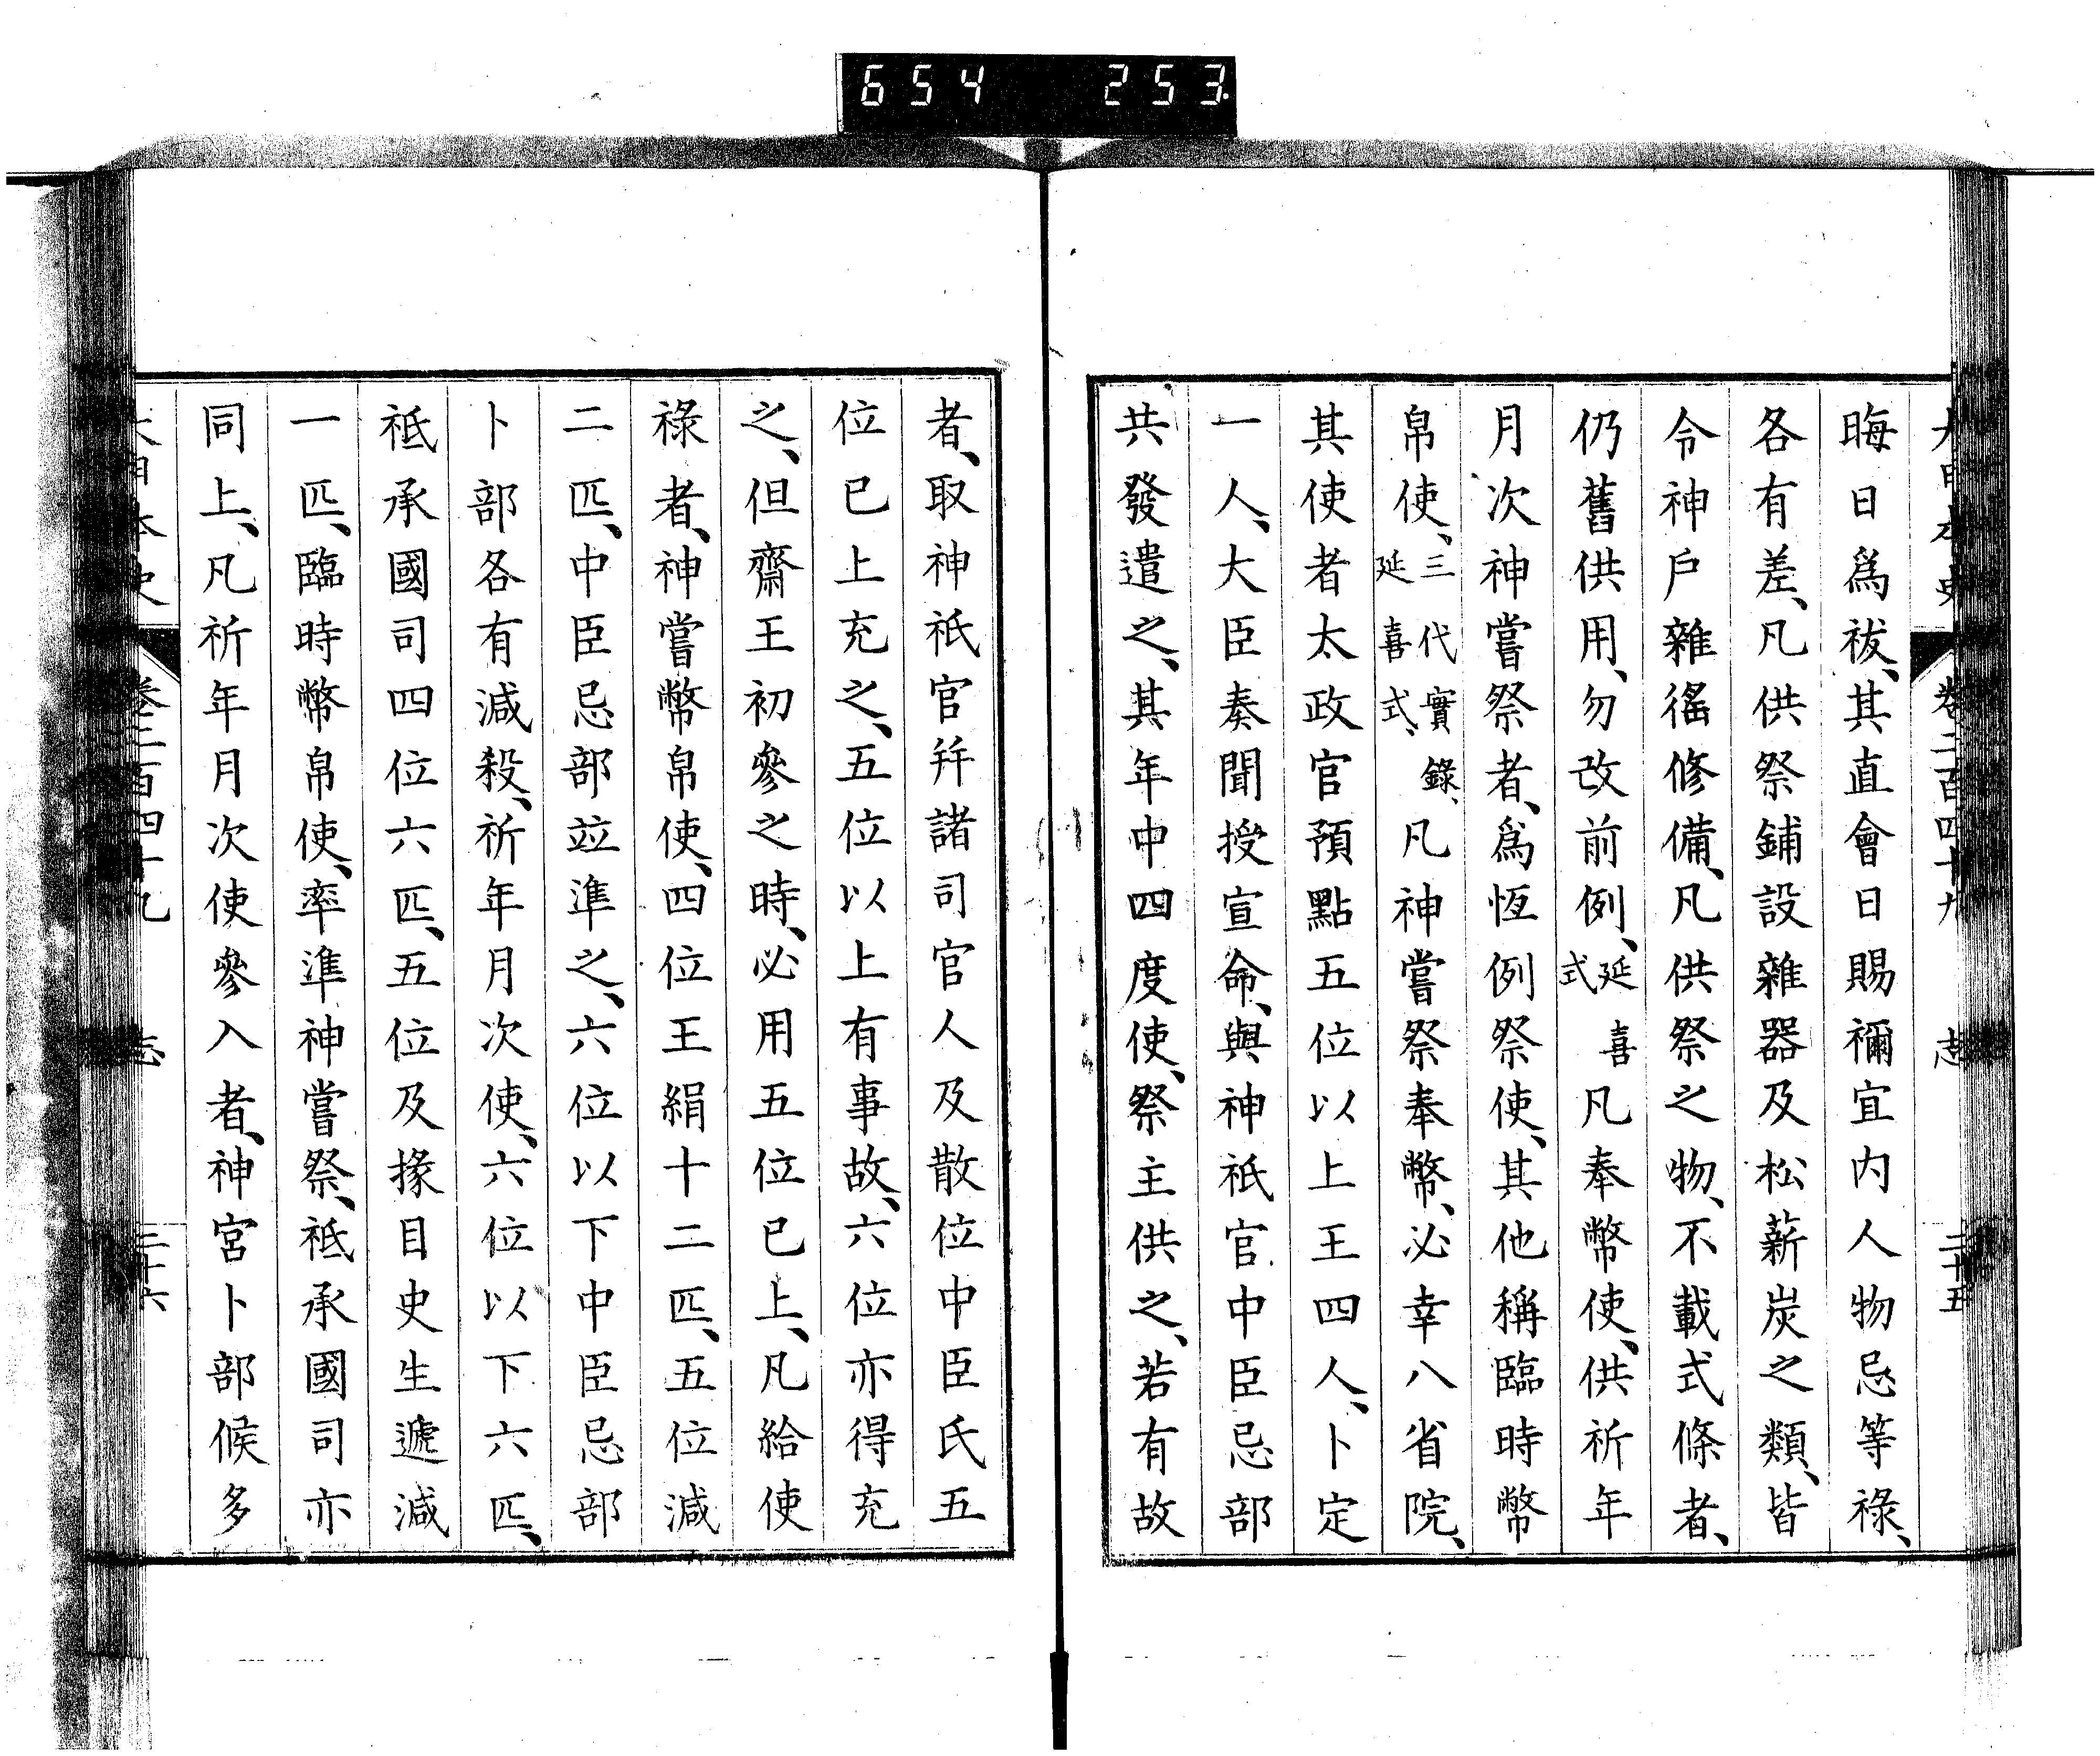 654 253.
大日本史 卷二百四十九 志 二十五
晦日爲祓、其直會日賜禰宜内人物忌等祿、
各有差、凡供祭鋪設雜器及松薪炭之類、皆
令神戶雜徭修備、凡供祭之物、不載式條者、
仍舊供用、勿改前例、延喜式凡奉幣使、供祈年
月次神嘗祭者、爲恆例祭使、其他稱臨時幣
帛使、三代實錄、延喜式、凡神嘗祭奉幣、必幸八省院、
其使者太政官預點五位以上王四人、卜定
一人、大臣奏聞授宣命、與神祇官中臣忌部
共發遣之、其年中四度使、祭主供之、若有故
者、取神祇官幷諸司官人及散位中臣氏五
位已上充之、五位以上有事故、六位亦得充
之、但齋王初參之時、必用五位已上、凡給使
祿者、神嘗幣帛使、四位王絹十二匹、五位減
二匹、中臣忌部竝準之、六位以下中臣忌部
卜部各有減殺、祈年月次使、六位以下六匹、
祗承國司四位六匹、五位及掾目史生遞減
一匹、臨時幣帛使、率準神嘗祭、祗承國司亦
同上、凡祈年月次使參入者、神宮卜部候多
大日本史 卷二百四十九 志 二十六